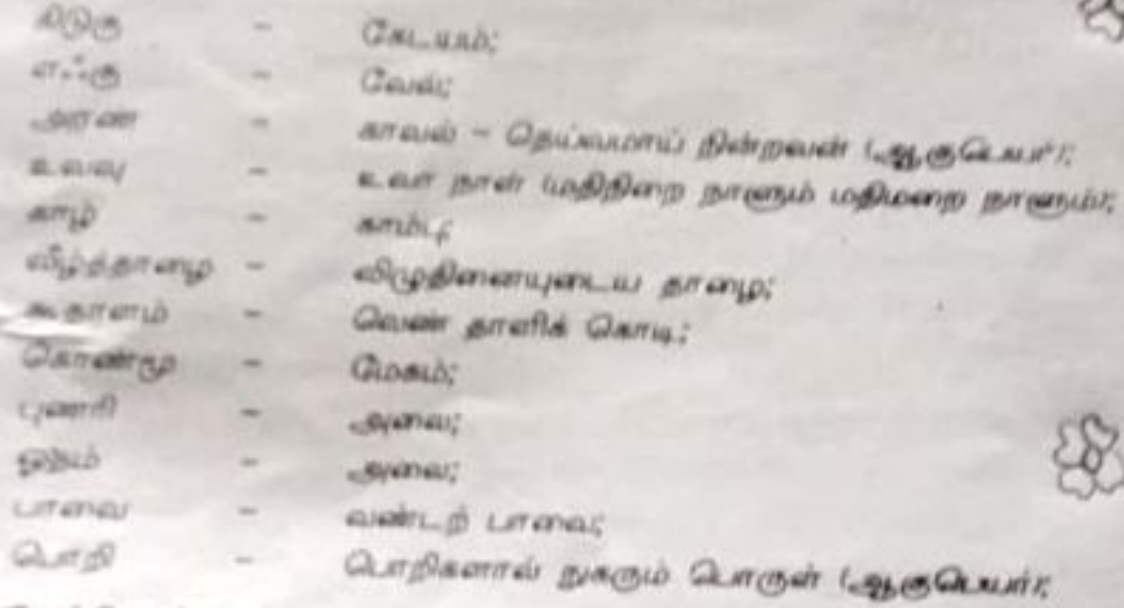 கிடுகு - கேடயம்;
எஃகு - வேல்;
அரண் - காவல் - தெய்வமாய் நின்றவன் (ஆகுபெயர்);
உவவு - உவா நாள் (மதிநிறை நாளும் மதிமறை நாளும்);
காழ் - காம்பு;
வீழ்த்தாழை - விழுதினையுடைய தாழை;
கூதாளம் - வெண் தாளிக் கொடி;
கொண்மூ - மேகம்;
புணரி - அலை;
ஓதம் - அலை;
பாவை - வண்டற் பாவை;
பொறி - பொறிகளால் நுகரும் பொருள் (ஆகுபெயர்);